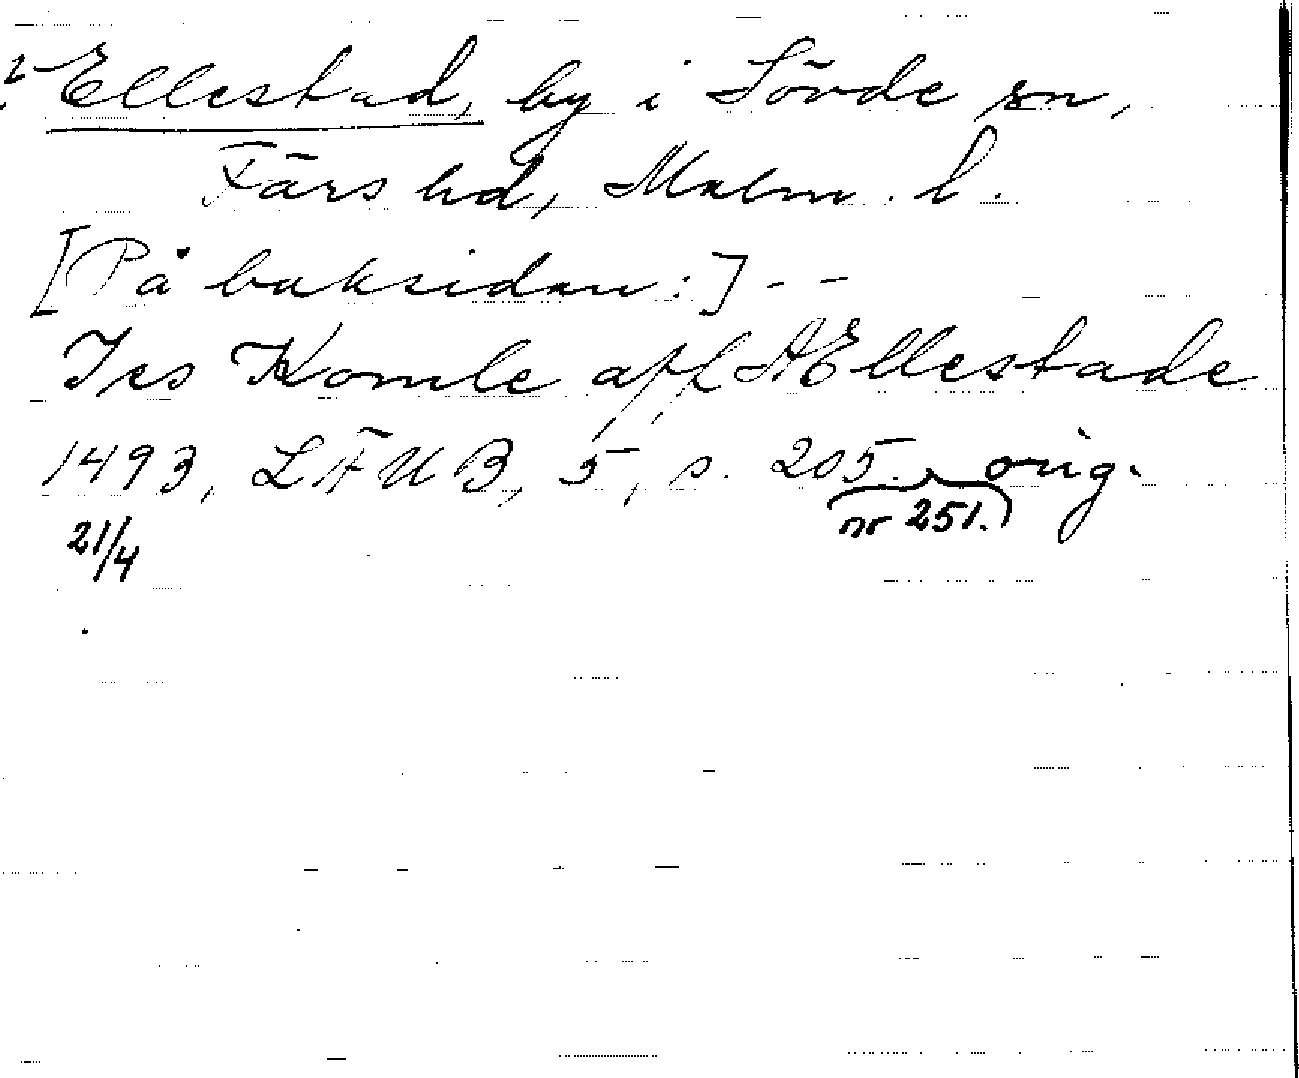 Ellestad, by i Sövde sn,
Färs hd, Malm. l.
[På baksidan:] - -
Jes Komle aff Ællestade
1493, LÄUB, 5, s. 205. orig.
nr 251.
21/4